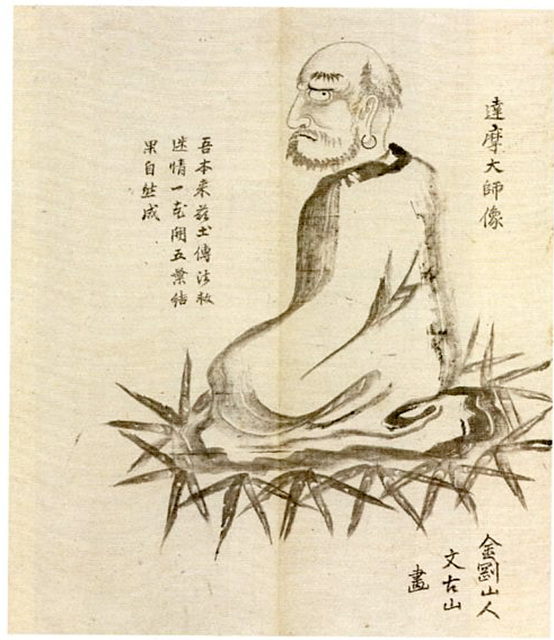 達摩大師像
吾本来茲土傳法救
迷情一花開五葉結
果自然成
金剛山人
文古山
畫